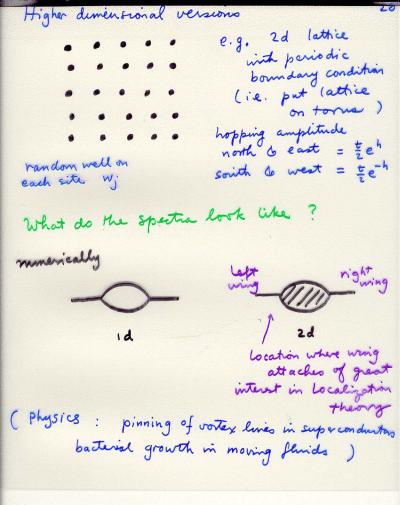 Higher dimensional versions
20
e.g. 2d lattice
with periodic
boundary condition
(i.e. put lattice
on torus)
hopping amplitude
north & east = t/2 e^h
south & west = t/2 e^-h
random well on
each site wj
What do the spectra look like ?
numerically
1d
left
wing
right
wing
2d
Location where wing
attaches of great
interest in Localization
theory
( Physics : pinning of vortex lines in superconductors
bacterial growth in moving fluids )